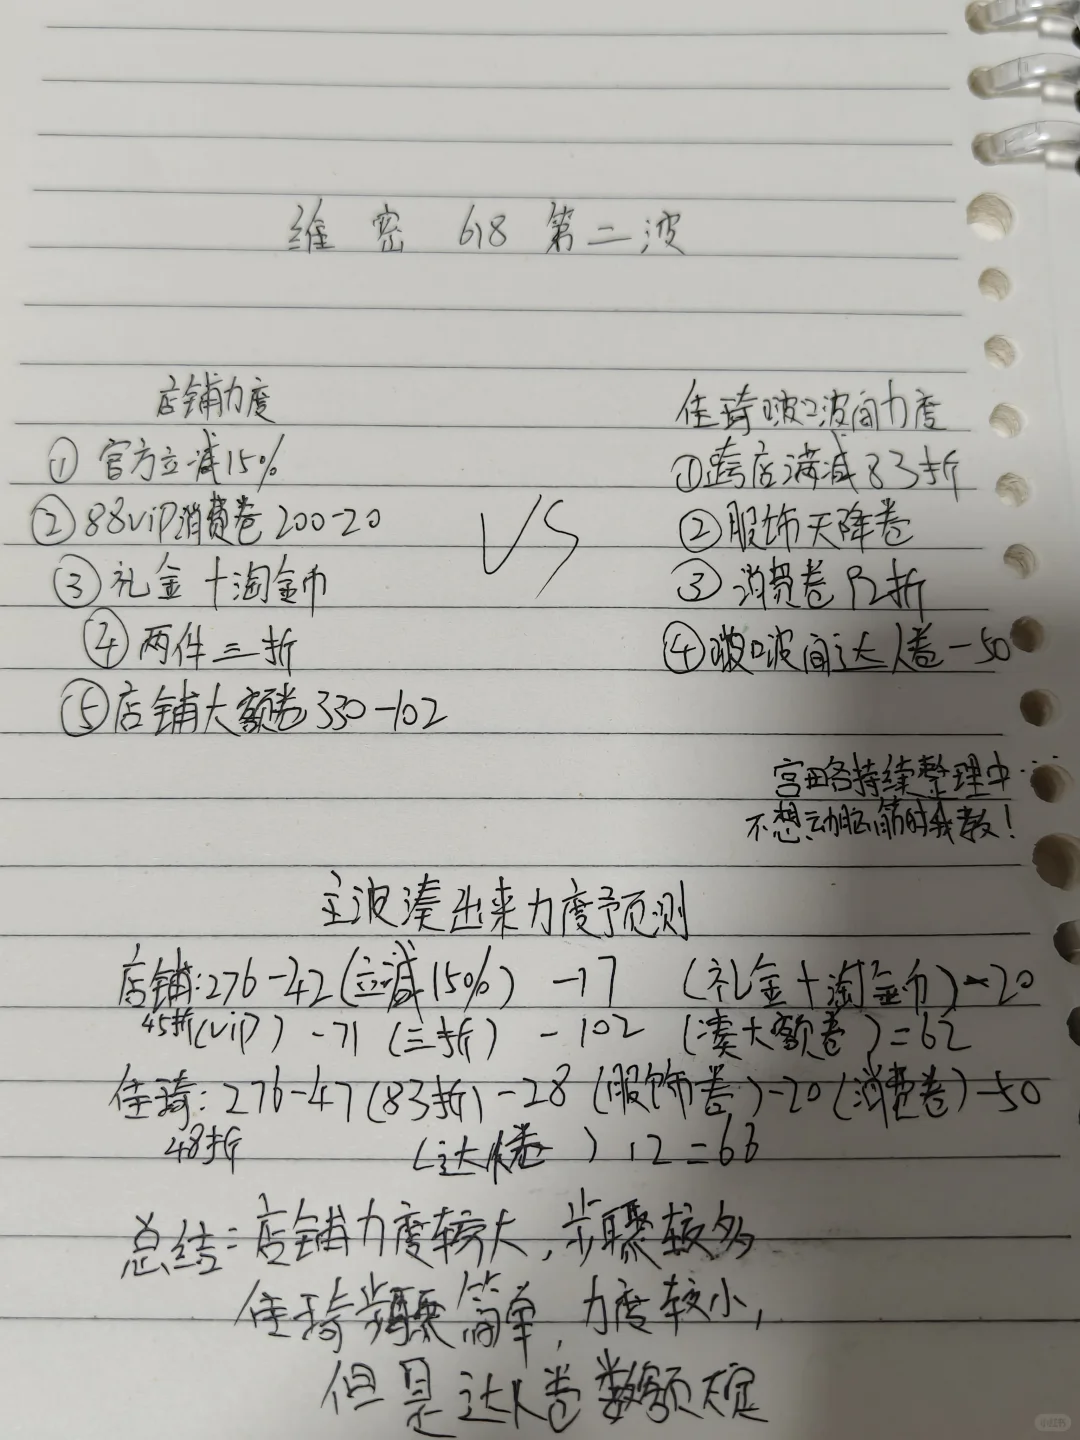 维密 618 第二波
店铺力度
①官方立减15%
②88vip消费卷 200-20
③礼金+淘金币
④两件三折
⑤店铺大额卷330-102
VS
佳琦啵啵间力度
①跨店满减83折
②服饰天降卷
③消费卷92折
④啵啵间达人卷-50
持续整理中…
不想动脑筋时我教!
主波凑出来力度预测
店铺:276-42(立减15%) -17 (礼金+淘金币)-20
45折(vip) -71 (三折) -102 (凑大额卷)=62
佳琦:276-47(83折)-28(服饰卷)-20(消费卷)-50
48折 (达人卷) 12=66
总结:店铺力度较大,步骤较多
佳琦步骤简单,力度较小,
但是达人卷数额
小红书